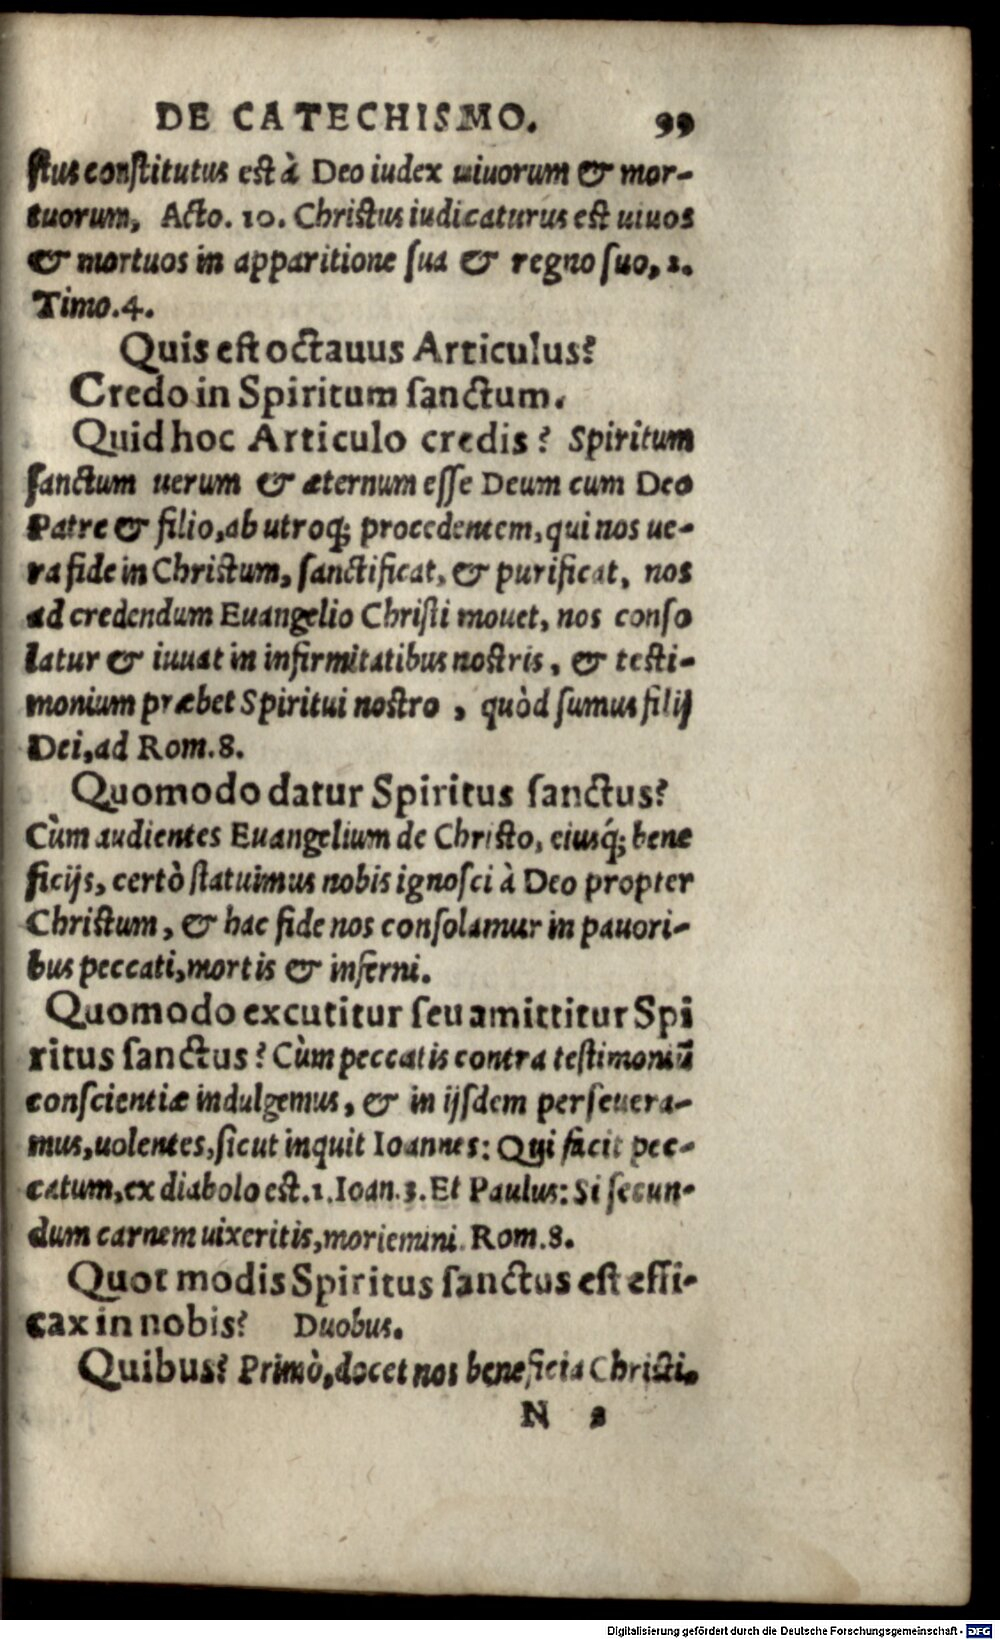 DE CATECHISMO. 99
ſtus conſtitutus eſt à Deo iudex uiuorum & mor-
tuorum, Acto. 10. Chriſtus iudicaturus eſt uiuos
& mortuos in apparitione ſua & regno ſuo, 2.
Timo. 4.
Quis eſt octauus Articulus?
Credo in Spiritum ſanctum.
Quid hoc Articulo credis? Spiritum
ſanctum uerum & æternum eſſe Deum cum Deo
Patre & filio, ab utroq; procedentem, qui nos ue-
ra fide in Chriſtum, ſanctificat, & purificat, nos
ad credendum Euangelio Chriſti mouet, nos conſo
latur & iuuat in infirmitatibus noſtris, & teſti-
monium præbet Spiritui noſtro, quòd ſumus filij
Dei, ad Rom. 8.
Quomodo datur Spiritus ſanctus?
Cùm audientes Euangelium de Chriſto, eiusq́; bene
ficijs, certò ſtatuimus nobis ignoſci à Deo propter
Chriſtum, & hac fide nos conſolamur in pauori-
bus peccati, mortis & inferni.
Quomodo excutitur ſeu amittitur Spi
ritus ſanctus? Cùm peccatis contra teſtimoniū
conſcientiæ indulgemus, & in ijſdem perſeuera-
mus, uolentes, ſicut inquit Ioannes: Qui facit pec-
catum, ex diabolo eſt. 1. Ioan. 3. Et Paulus: Si ſecun-
dum carnem uixeritis, moriemini. Rom. 8.
Quot modis Spiritus ſanctus eſt effi-
cax in nobis? Duobus.
Quibus? Primò, docet nos beneficia Chriſti.
N 2
Digitalisierung gefördert durch die Deutsche Forschungsgemeinschaft - DFG